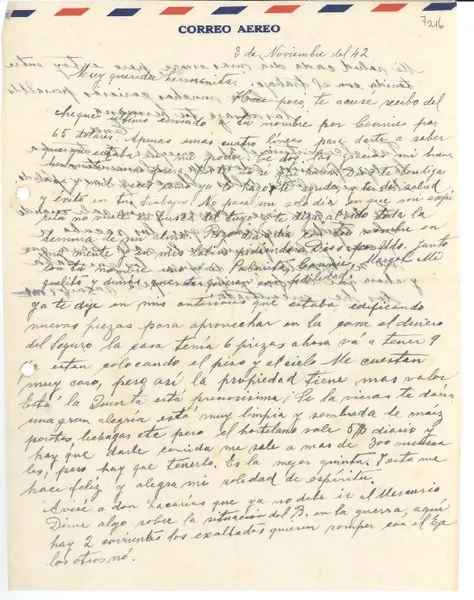 7216
CORREO AEREO
3 de Noviembre del 42
Muy querida hermanita:
Hace poco, te acusé recibo del
cheque enviado a tu nombre por Connie por
65 dolares. Apenas unas cuatro líneas para darte a saber
que estaba en mi poder. Te doy las gracias mi buena
te bendiga
yo te ayude, y te dé salud
y éxito en tu trabajo. No pasa un solo día en que mi espí
ritu no vaya en busca del tuyo y te diga al oído toda la
ternura de mi alma. tu nombre en
mi mente y en mis labios pidiendo a Dios por tí. Junto
con tu nombre van el de Palmita, Connie, Margot, Mi
guelito y demás que te quieren
Ya te dije en mis anteriores que estaba edificando
nuevas piezas para aprovechar en la casa el dinero
del Seguro. La casa tenía 6 piezas ahora va a tener 9
Ya están colocando el piso y el cielo. Me cuestan
muy caro, pero así la propiedad tiene mas valor
Está la Quinta está preciosísima! Si la vieras te daría
una gran alegría está muy limpia y sembrada de maiz
porotos lechugas etc pero el hortelano vale diario y
hay que darle comida me sale a mas de 300 mensua
les, pero hay que tenerlo. Es la mejor quinta. Y esto me
hace feliz y alegra mi soledad de espíritu.
Avisé a don Zacarías que ya no debe ir al Mercurio
Dime algo sobre la situación del B. en la guerra, aquí
hay 2 corrientes los exaltados quieren romper con el Eje
los otros nó.